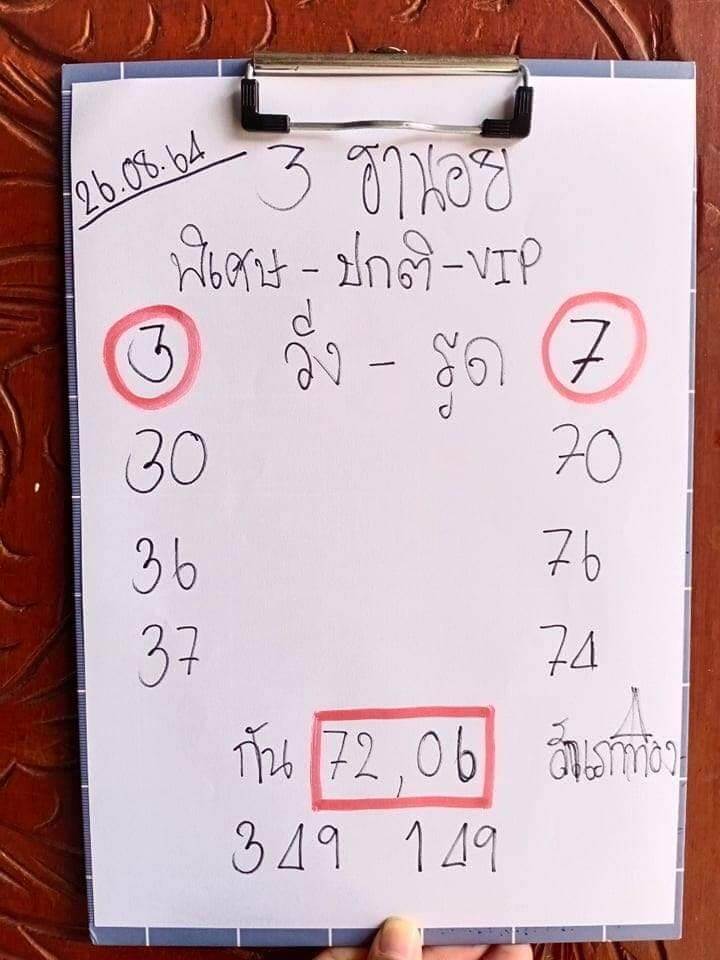 26.08.64
3 ฮานอย
พิเศษ - ปกติ - VIP
3 วิ่ง - รูด 7
30 70
36 76
37 74
กัน 72, 06
349 149